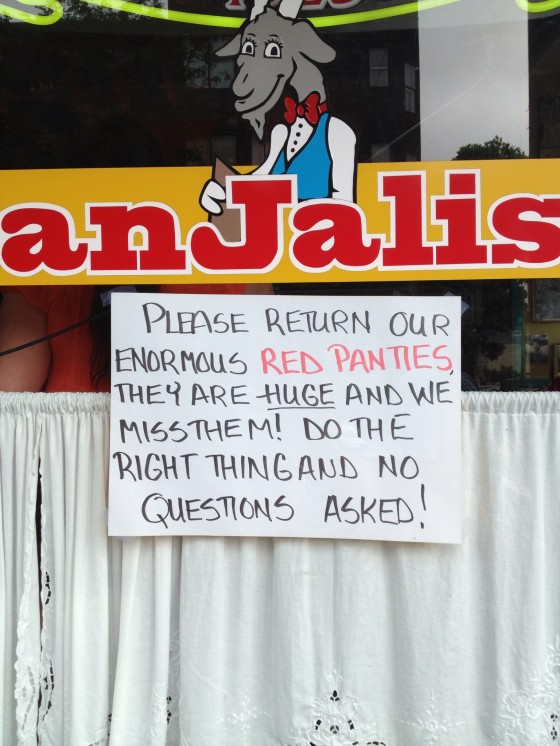 anJalis
PLEASE RETURN OUR
ENORMOUS RED PANTIES,
THEY ARE HUGE AND WE
MISS THEM! DO THE
RIGHT THING AND NO
QUESTIONS ASKED!